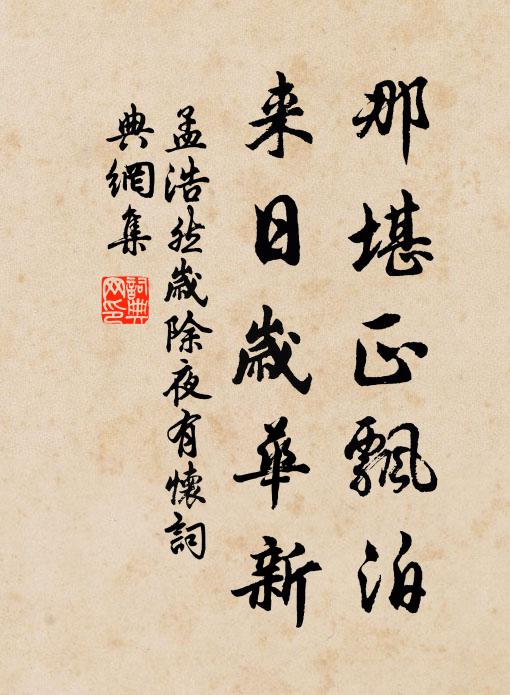 那堪正飄泊
来日歲華新
孟浩然歲除夜有懷詞
典網集
詞典网印